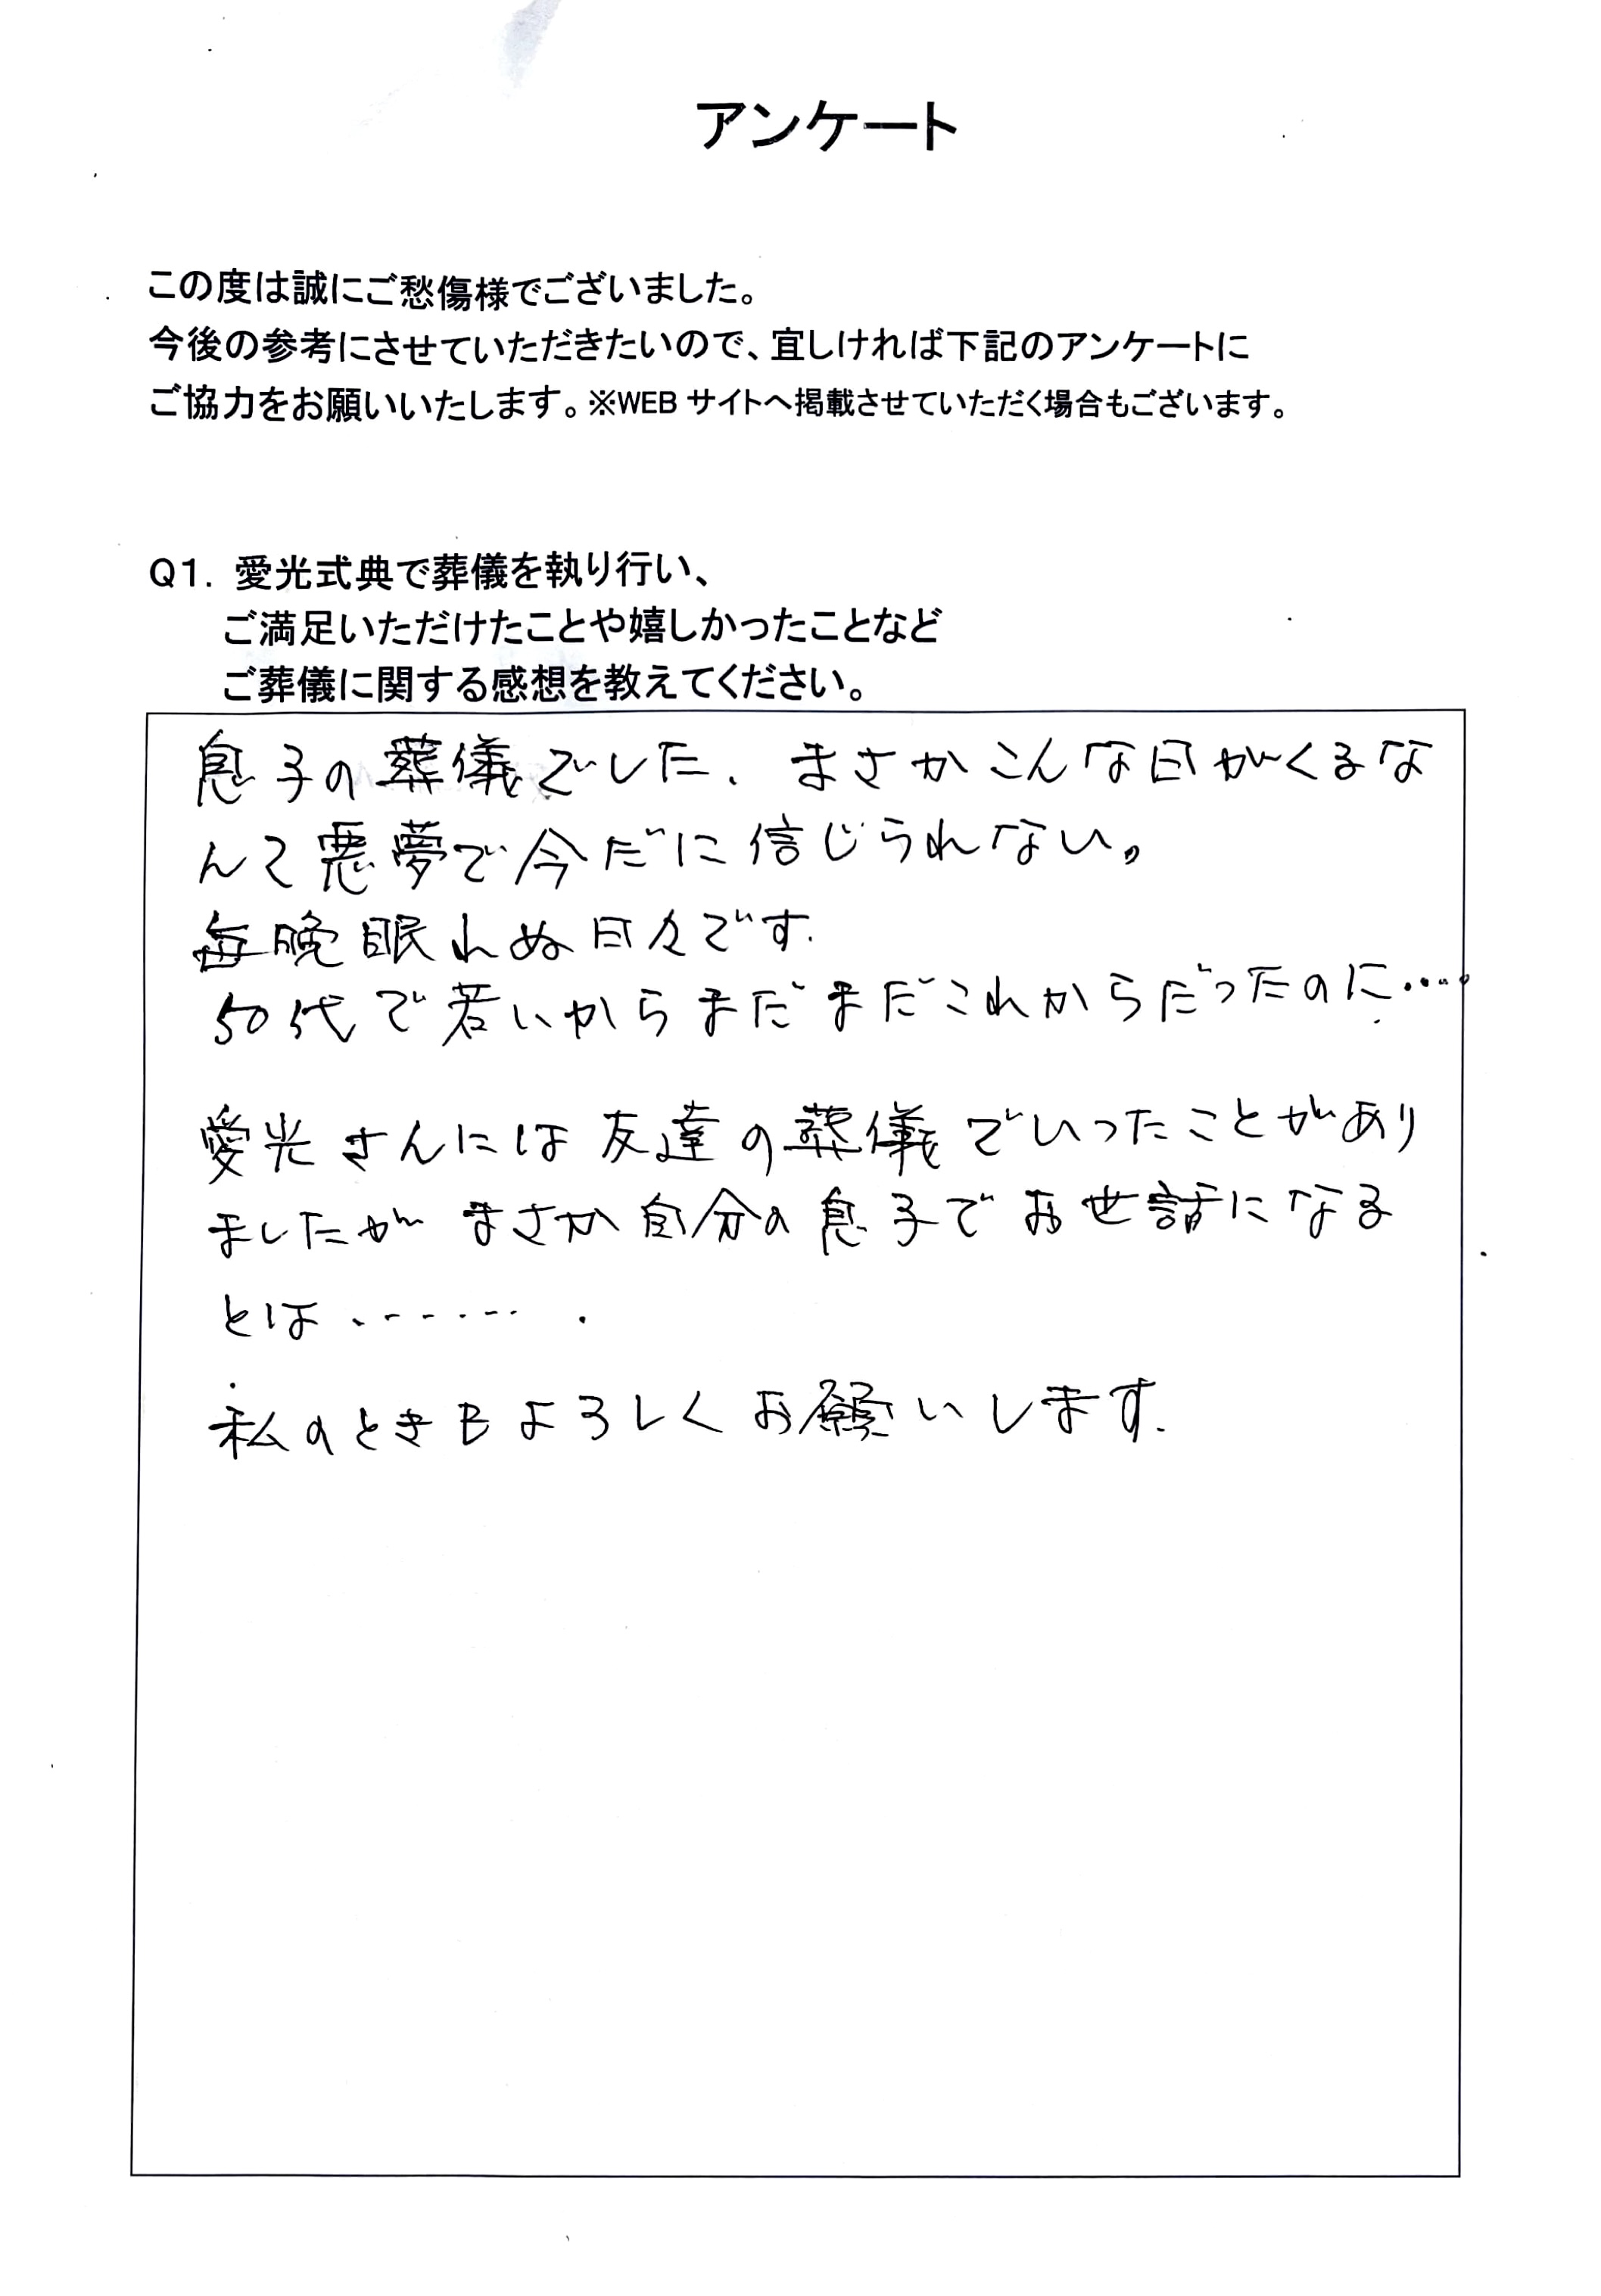 アンケート
この度は誠にご愁傷様でございました。
今後の参考にさせていただきたいので、宜しければ下記のアンケートに
ご協力をお願いいたします。※WEB サイトへ掲載させていただく場合もございます。
Q1. 愛光式典で葬儀を執り行い、
ご満足いただけたことや嬉しかったことなど
ご葬儀に関する感想を教えてください。
息子の葬儀でした. まさかこんな日がくるな
んて悪夢で今だに信じられない。
毎晩眠れぬ日々です.
50代で若いからまだまだこれからだったのに・・・。
愛光さんには友達の葬儀でいったことがあり
ましたが まさか自分の息子でお世話になる
とは ・・・・・・・ .
私のときもよろしくお願いします.